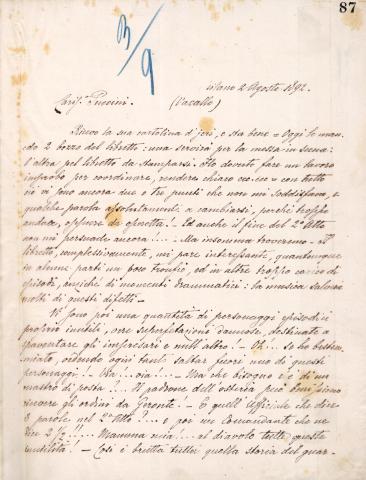 87
3/9
Milano 2 Agosto 1892.
Cariss.o Puccini. (Vacallo)
Ricevo la sua cartolina d'jeri, e sta bene = Oggi le man-
do 2 bozze del libretto: una servirà per la messa in scena:
l'altra pel libretto da stamparsi. Ho dovuto fare un lavoro
improbo per coordinare, rendere chiaro ecc. ecc = con tutto
ciò vi sono ancora due o tre punti che non mi soddisfano, e
qualche parola assolutamente a cambiarsi, perchè troppo
audace, oppure da operetta! = Ed anche il fine del 2.o Atto
non mi persuade ancora !... = Ma insomma troveremo = Il
libretto, complessivamente, mi pare interessante, quantunque
in alcune parti un poco tronfio, ed in altre troppo carico di
episodi, anzichè di momenti drammatici: la musica salverà
molti di questi difetti =
Vi sono poi una quantità di personaggi episodici
proprio inutili, ove superfetazioni dannose, destinate a
spaventare gli impresari e null'altro! = Oh!.. Se ho bestem-
miato, vedendo ogni tanto saltar fuori uno di questi
personaggi! = Via... via! = Ma che bisogno c'è di un
mastro di posta?... Il padrone dell'osteria può benissimo
ricevere gli ordini da Geronte! = E quell'Ufficiale che dice
3 parole nel 2.o Atto?... e poi un Comandante che ne
dice 2 1/2!!... Mamma mia!.. al diavolo tutte queste
inutilità! = Così è brutta tutta quella storia del guar-